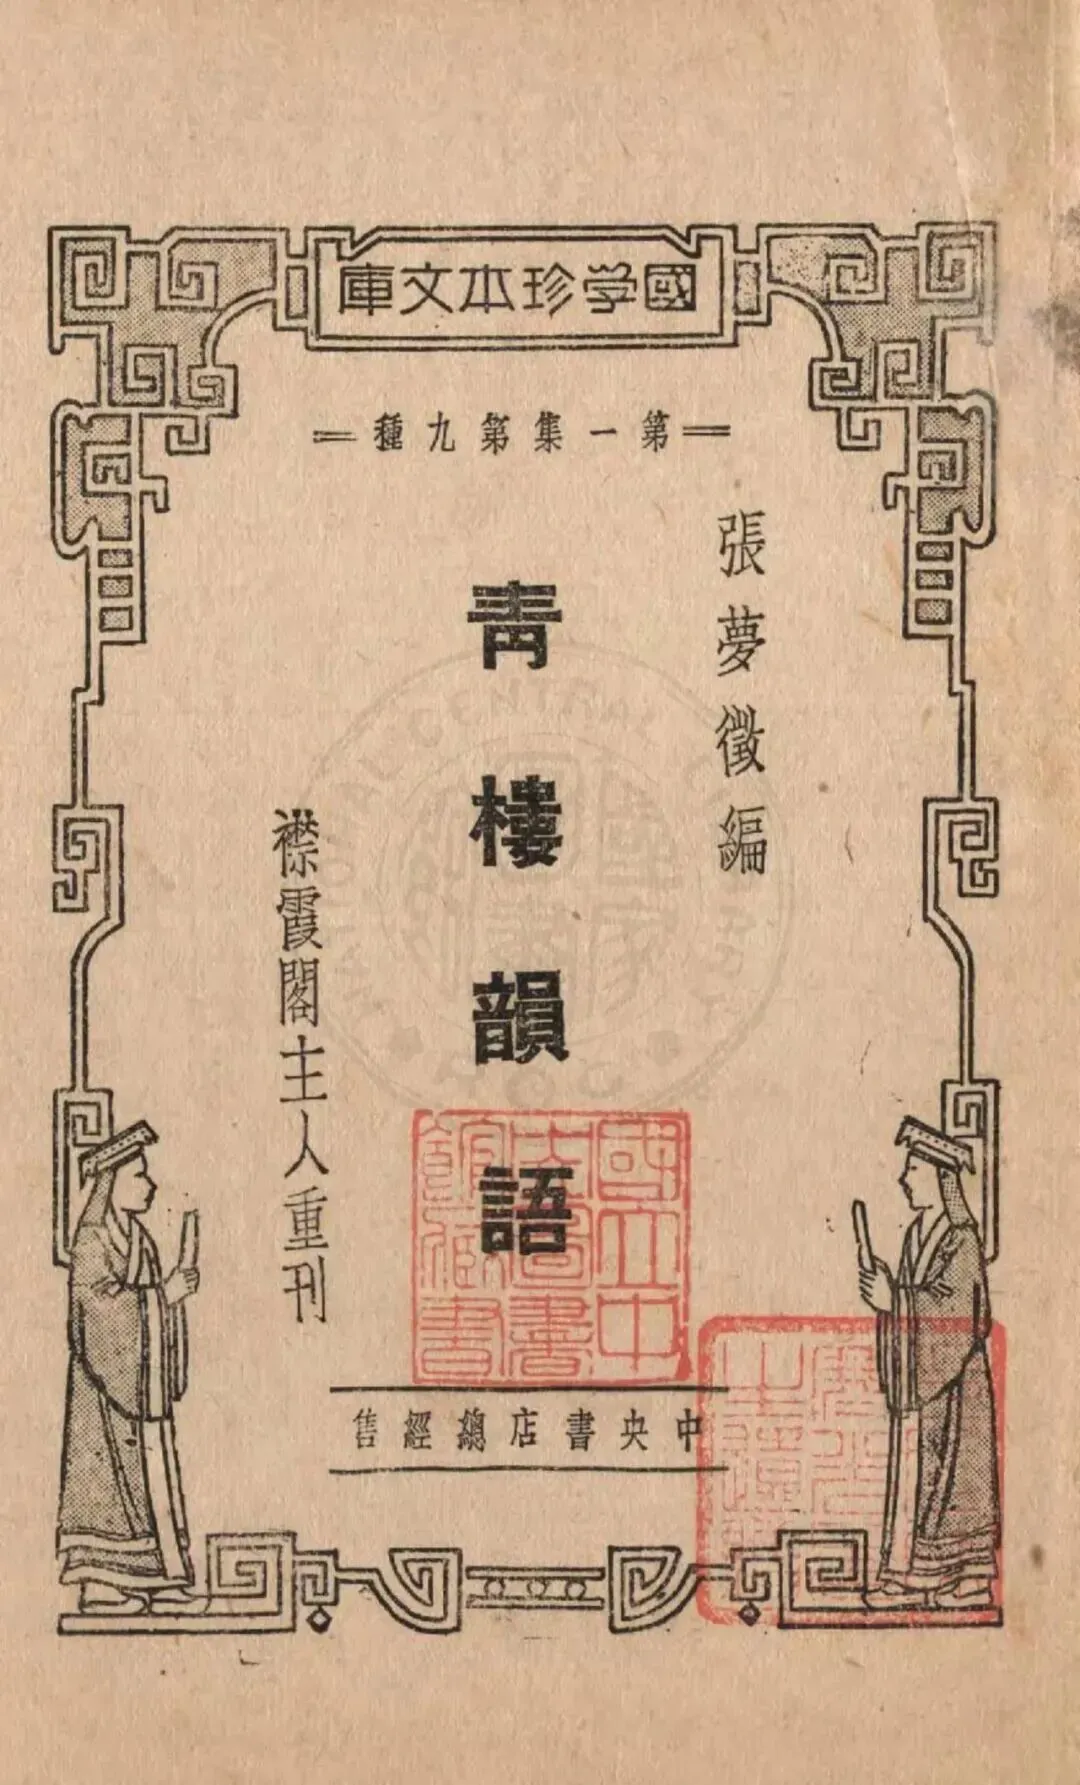 國学珍本文庫
第一集第九種
張夢徵編
青樓韻語
襟霞閣主人重刊
國立中
央圖書
館藏書
中央書店總經售